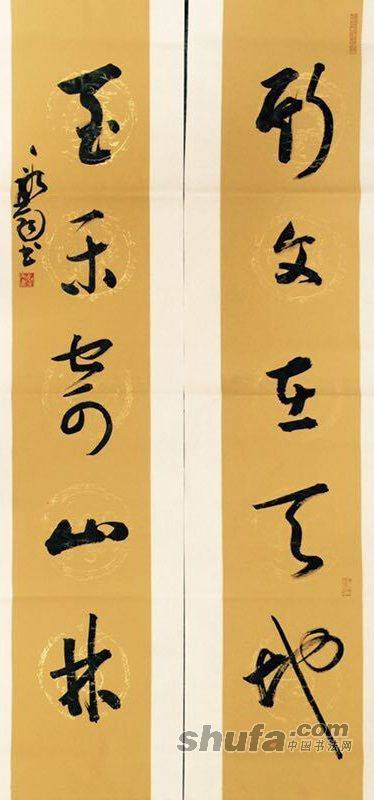 斯文在天地
至乐寄山林
书
shufa.com
中国书法网